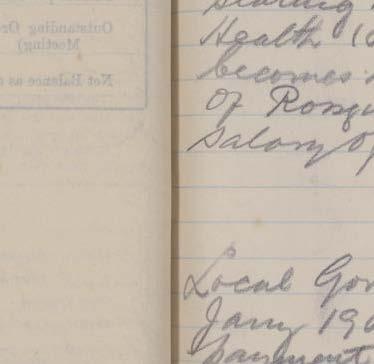 Outstanding Or
Meeting)
Net Balance as
stating
Health
becomes
of Rosg
salary of
Local Gov
Jany 190
payment